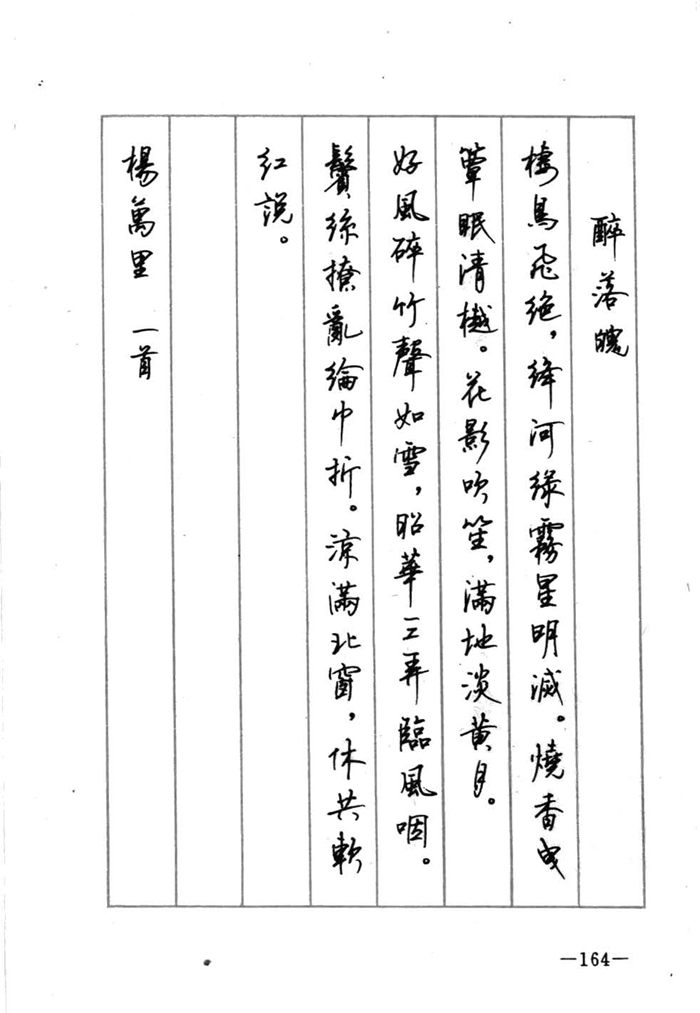 醉落魄
棲鳥飛絶，絳河綠霧星明滅。燒香曳
簟眠清樾。花影吹笙，滿地淡黃月。
好風碎竹聲如雪，昭華三弄臨風咽。
鬢絲撩亂綸巾折。涼滿北窗，休共軟
紅説。
楊萬里 一首
—164—